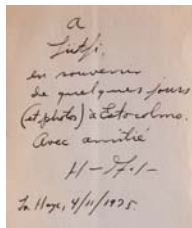 A
Lutfi,
en souvenir
de quelques jours
(et photos) à Estocolmo.
Avec amitié
La Haye, 4/11/1975.